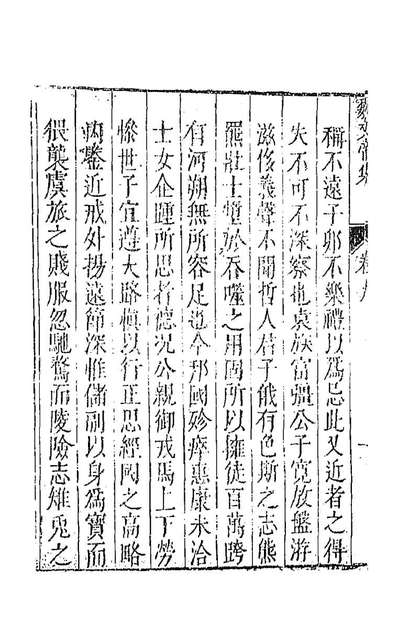 稱不遠子卯不樂禮以爲忌此又近者之得
失不可不深察也袁族富彊公子寬放盤游
滋侈義聲不聞哲人君子俄有色斯之志熊
羆壯士墮於吞噬之用固所以擁徒百萬跨
有河朔無所容足也今邦國殄瘁惠康未洽
士女企踵所思者德况公親御戎馬上下勞
慘世子宜遵大路愼以行正思經國之高略
内鑒近戒外揚遠節深惟儲副以身爲寶而
猥襲虞旅之賤服忽馳騖而陵險志雉兎之
魏文帝集
卷九